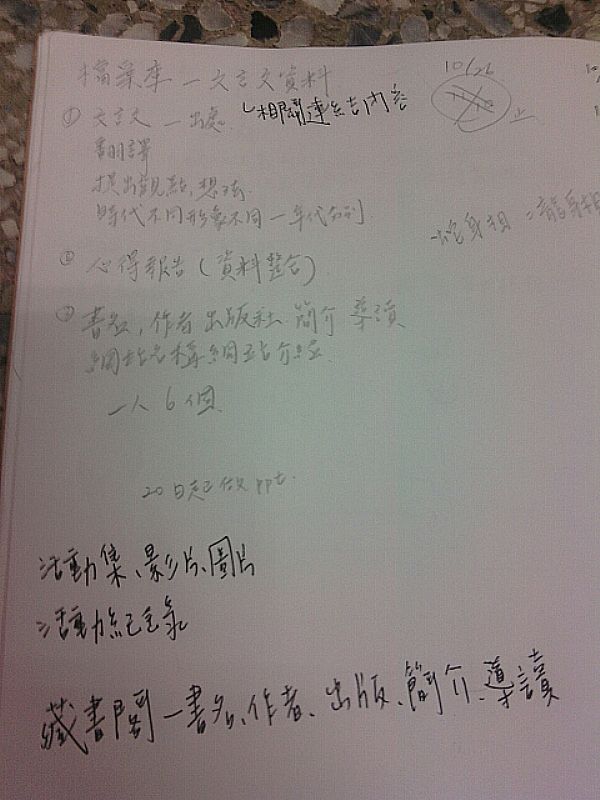 檔案庫－文言文資料
└相關連結內容
10/26
① 文言文－出處
翻譯
提出觀點,想法.
時代不同形象不同－年代有別
蛇身相 龍身相
② 心得報告(資料整合)
③ 書名,作者 出版社 簡介 導讀
網站名稱 網站介紹
一人6個
20日起做ppt.
活動集、影片、圖片
活動紀錄
藏書閣－書名、作者、出版、簡介、導讀